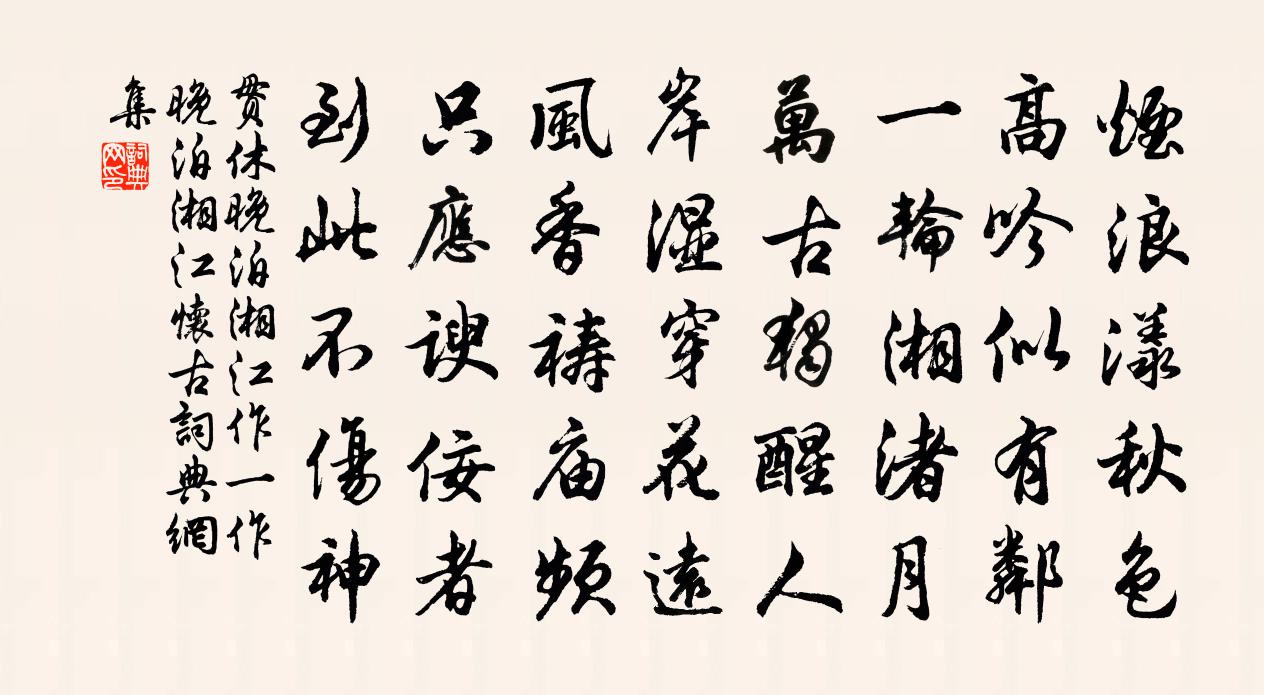 煙浪漾秋色
高吟似有鄰
一輪湘渚月
萬古獨醒人
岸濕穿花遠
風香禱庙頻
只應諛佞者
到此不傷神
貫休晚泊湘江作一作
晚泊湘江懷古詞典網
集
詞典
网印